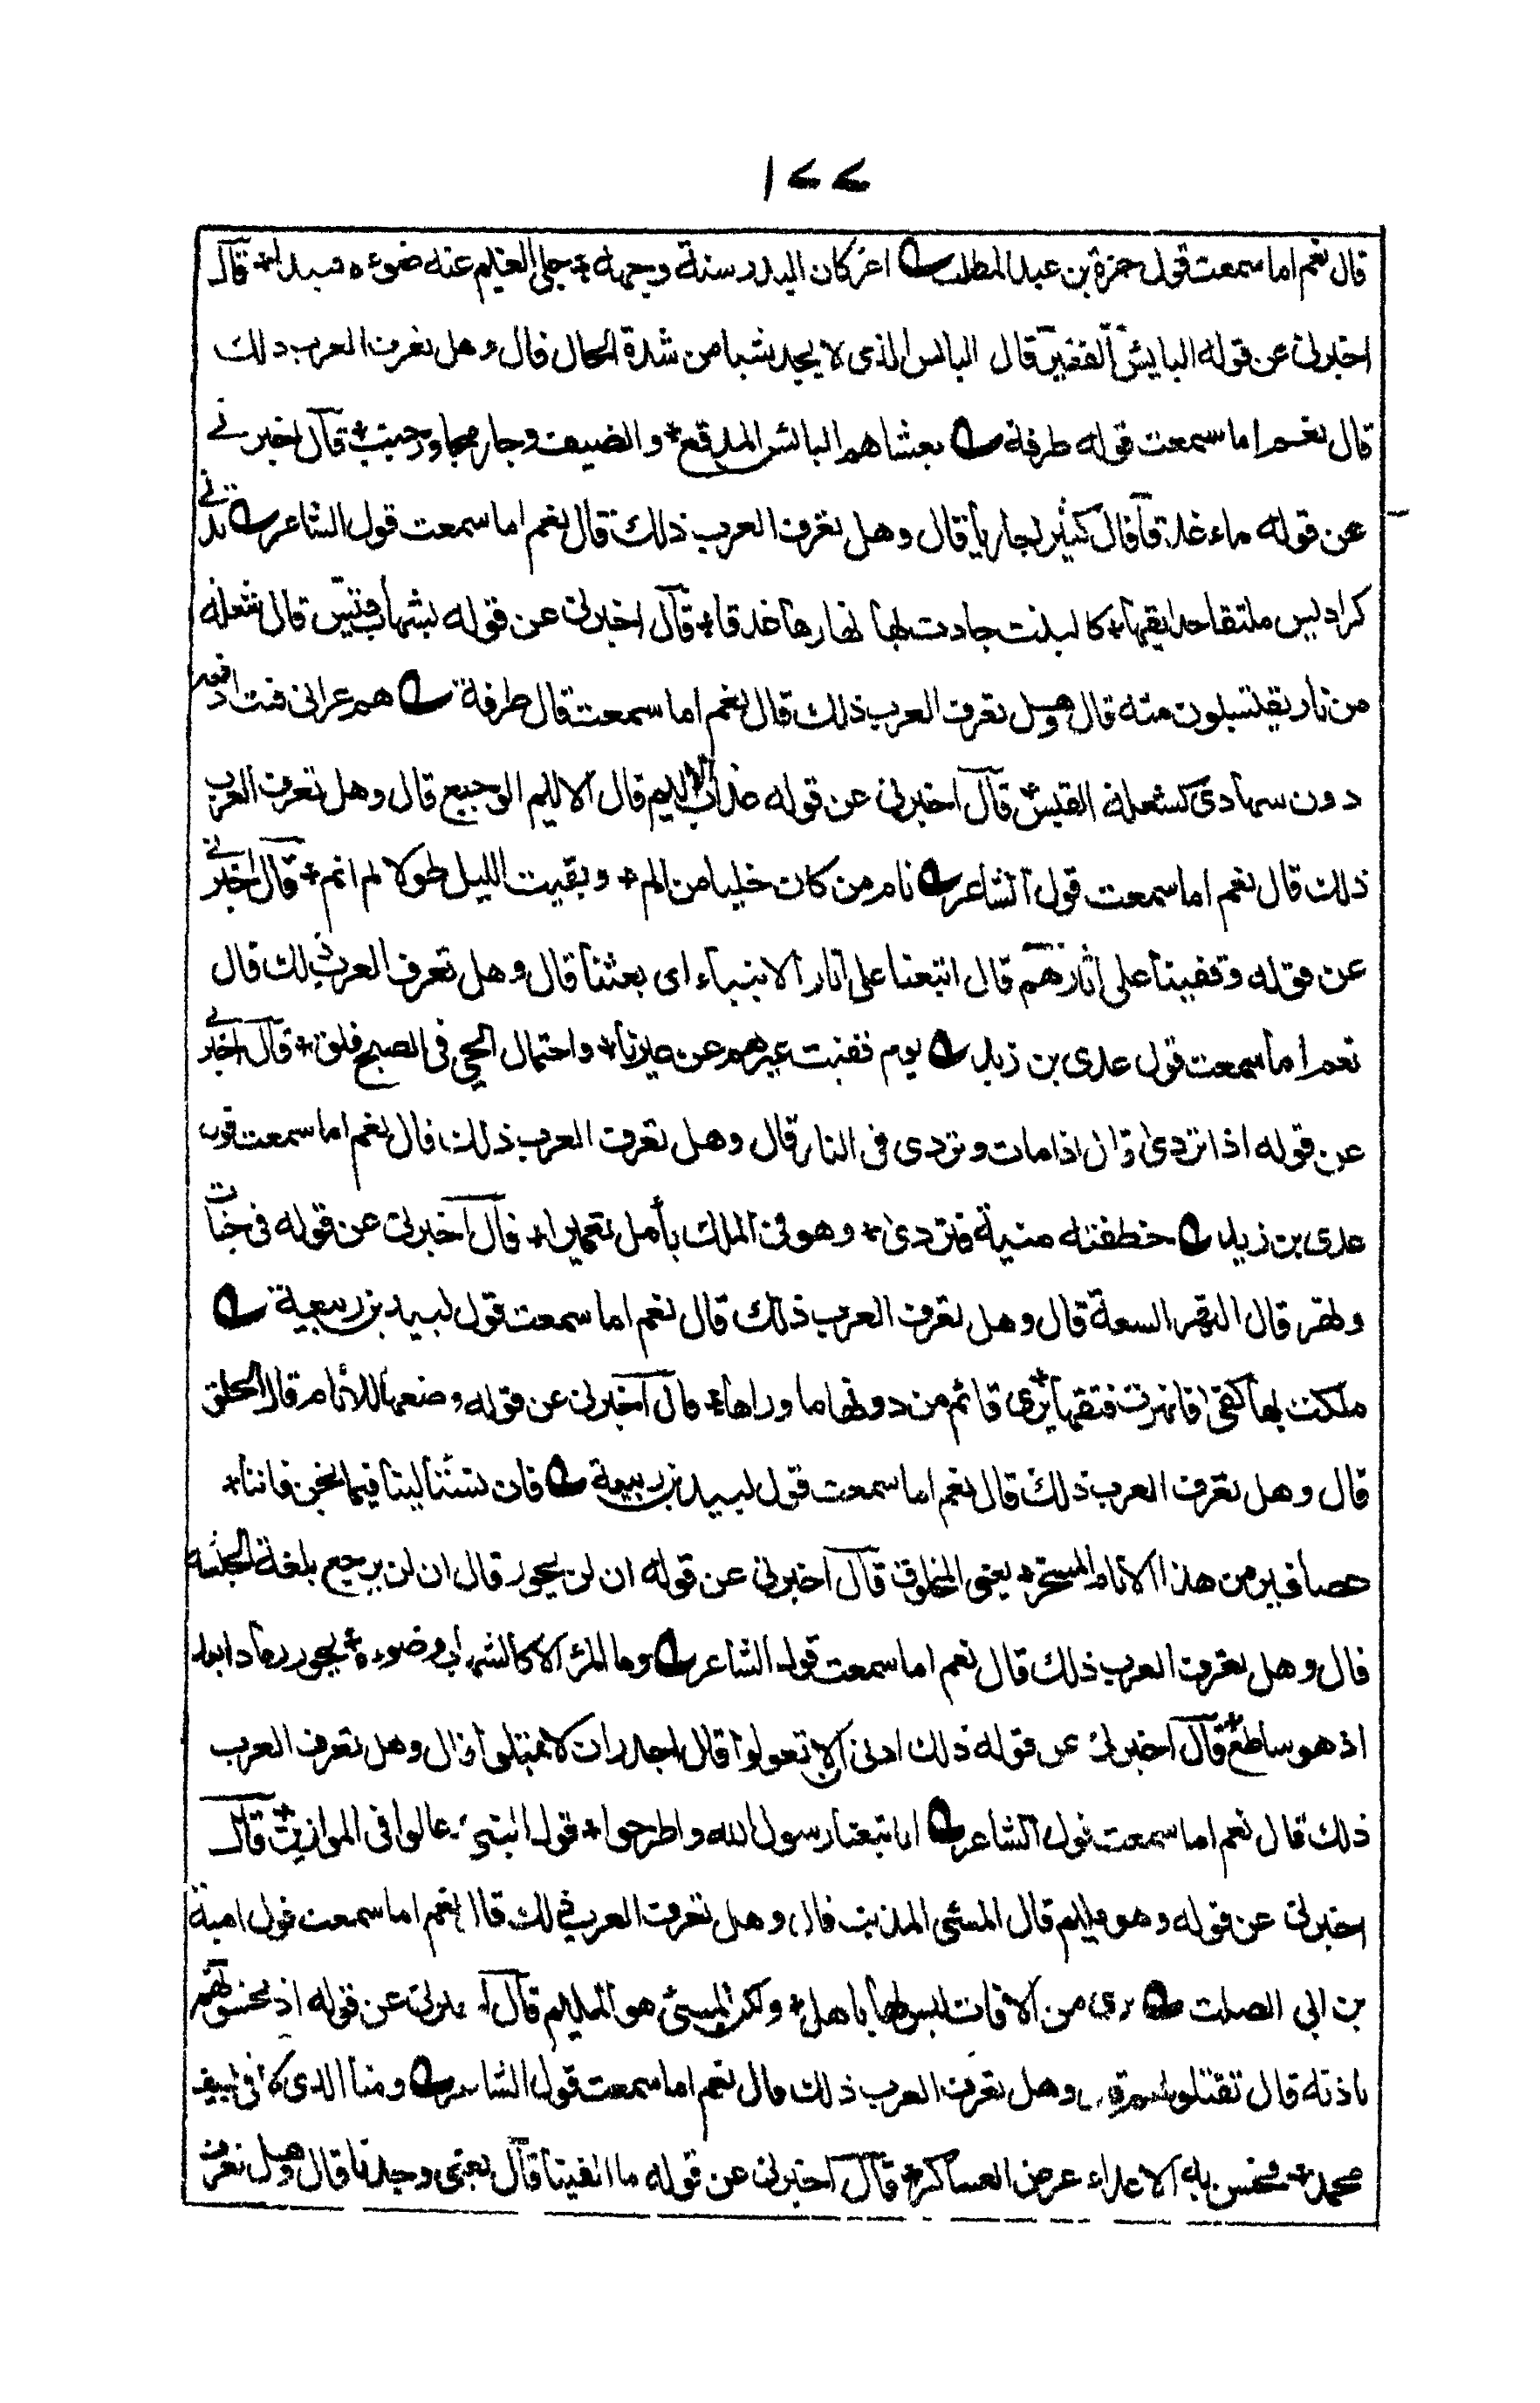 ١٧٧
قال نعم اما سمعت قول حمزة بن عبد المطلب اعز كان البدر سنة وجهه * جلى الغيم عنه ضوءه فتبدا * قال
اخبرنى عن قوله البايس الفقير قال البائس الذى لا يجد شيا من شدة الحال قال وهل تعرف العرب ذلك
قال نعم اما سمعت قوله طرفة يغشاهم البائس المدقع * والضيف وجار مجاور جنب * قال اخبرنے
عن قوله ماء غدقا قال كثير لجاريا قال وهل تعرف العرب ذلك قال نعم اما سمعت قول الشاعر تدنے
كراديس ملتفا حدايقها * كالبنت جادت بها انهارها غدقا * قال اخبرنى عن قوله بشهاب قبس قال شعلة
من نار يقتبسون منه قال وهل تعرف العرب ذلك قال نعم اما سمعت قال طرفة هم عرانى فبت ادفعه
دون سهادى كشعلة القبس * قال اخبرنى عن قوله عذاب اليم قال الاليم الوجيع قال وهل تعرف العرب
ذلك قال نعم اما سمعت قول الشاعر نام من كان خليا من الم * وبقيت الليل طولا لم انم * قال اخبرنے
عن قوله وقفينا على اثارهم قال اتبعنا على اثار الانبياء اى بعثنا قال وهل تعرف العرب ذلك قال
نعم اما سمعت قول عدى بن زيد يوم قفبت عيرهم عن عيرنا * واحتمال الحي فى الصبح فلق * قال اخبرنے
عن قوله اذا تردى قال اذا مات وتردى فى النار قال وهل تعرف العرب ذلك قال نعم اما سمعت قول
عدى بن زيد خطفته منية فتردى * وهو فى الملك يأمل تعميرا * قال اخبرنى عن قوله فى جنات
ونهر قال النهر السعة قال وهل تعرف العرب ذلك قال نعم اما سمعت قول لبيد بن ربيعة
ملكت بها كفى فانهرت فتقها * يرى قائم من دونها ما وراها * قال اخبرنى عن قوله وضعها للانام قال الخلق
قال وهل تعرف العرب ذلك قال نعم اما سمعت قول لبيد بن ربيعة فان تسئلينا فيما نحن فاننا *
عصافير من هذا الانام المسخر * يعنى المخلوق قال اخبرنى عن قوله ان لن يحور قال ان لن يرجع بلغة الحبشه
قال وهل تعرف العرب ذلك قال نعم اما سمعت قول الشاعر وما المرؤ الا كالشهاب وضوءه * يحور رمادا بعد
اذ هو ساطع * قال اخبرنى عن قوله ذلك ادنى الا تعولوا قال اجدر ان لا تميلوا قال وهل تعرف العرب
ذلك قال نعم اما سمعت قول الشاعر انا تبعنا رسول الله واطرحوا * قول النبي عالوا فى الموازين * قال
اخبرنى عن قوله وهو مليم قال المسئى المذنب قال وهل تعرف العرب ذلك قال نعم اما سمعت قول امية
بن ابى الصلت برى من الافات ليس لها باهل * ولكن المسئ هو المليم قال اخبرنى عن قوله اذ تحسونهم
باذنه قال تقتلونهم قال وهل تعرف العرب ذلك قال نعم اما سمعت قول الشاعر ومنا الذى لاقى بسيف
محمد * فحس به الاعداء عرض العساكر * قال اخبرنى عن قوله ما الفينا قال يعنى وجدنا قال وهل تعرف